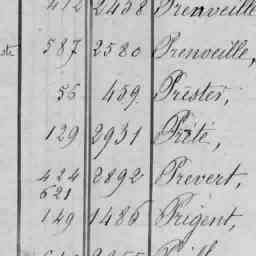 412 2438 Prenveille
587 2580 Prenveille,
55 459 Prestes,
129 2931 Prété,
424 2892 Prévert,
621
149 1486 Prigent,